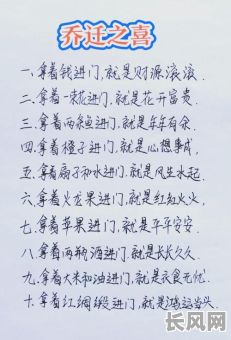 乔迁之喜
一、拿着钱进门,就是财源滚滚.
二、拿着一束花进门,就是花开富贵.
三、拿着两鱼进门,就是年年有余.
四、拿着橙子进门,就是心想事成,
五、拿着扇子和水进门,就是风生水起.
六、拿着火龙果进门,就是红红火火,
七、拿着苹果进门,就是平平安安.
八、拿着两瓶酒进门,就是长长久久.
九、拿着大米和油进门,就是衣食无忧.
十、拿着红绸缎进门,就是鸿运当头.
长风网
cfw.cn